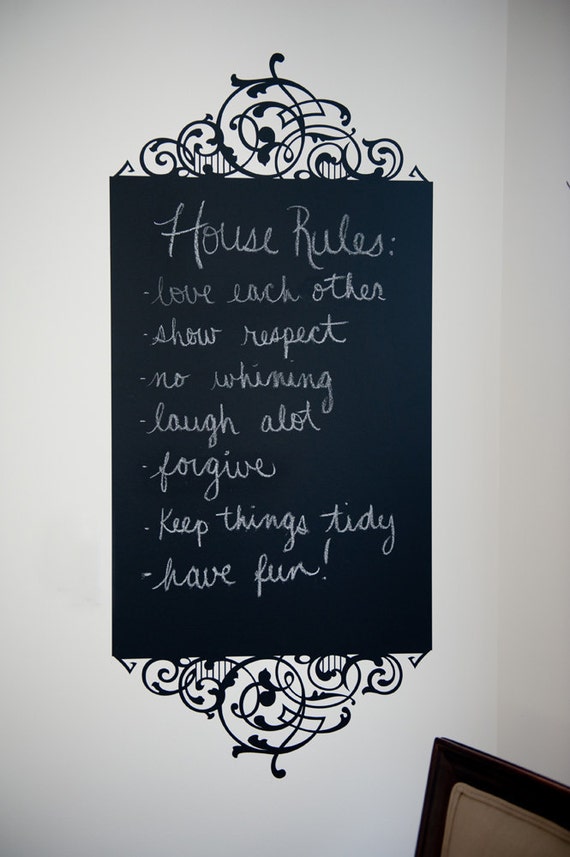 House Rules:
-love each other
-show respect
-no whining
-laugh alot
-forgive
-Keep things tidy
-have fun!